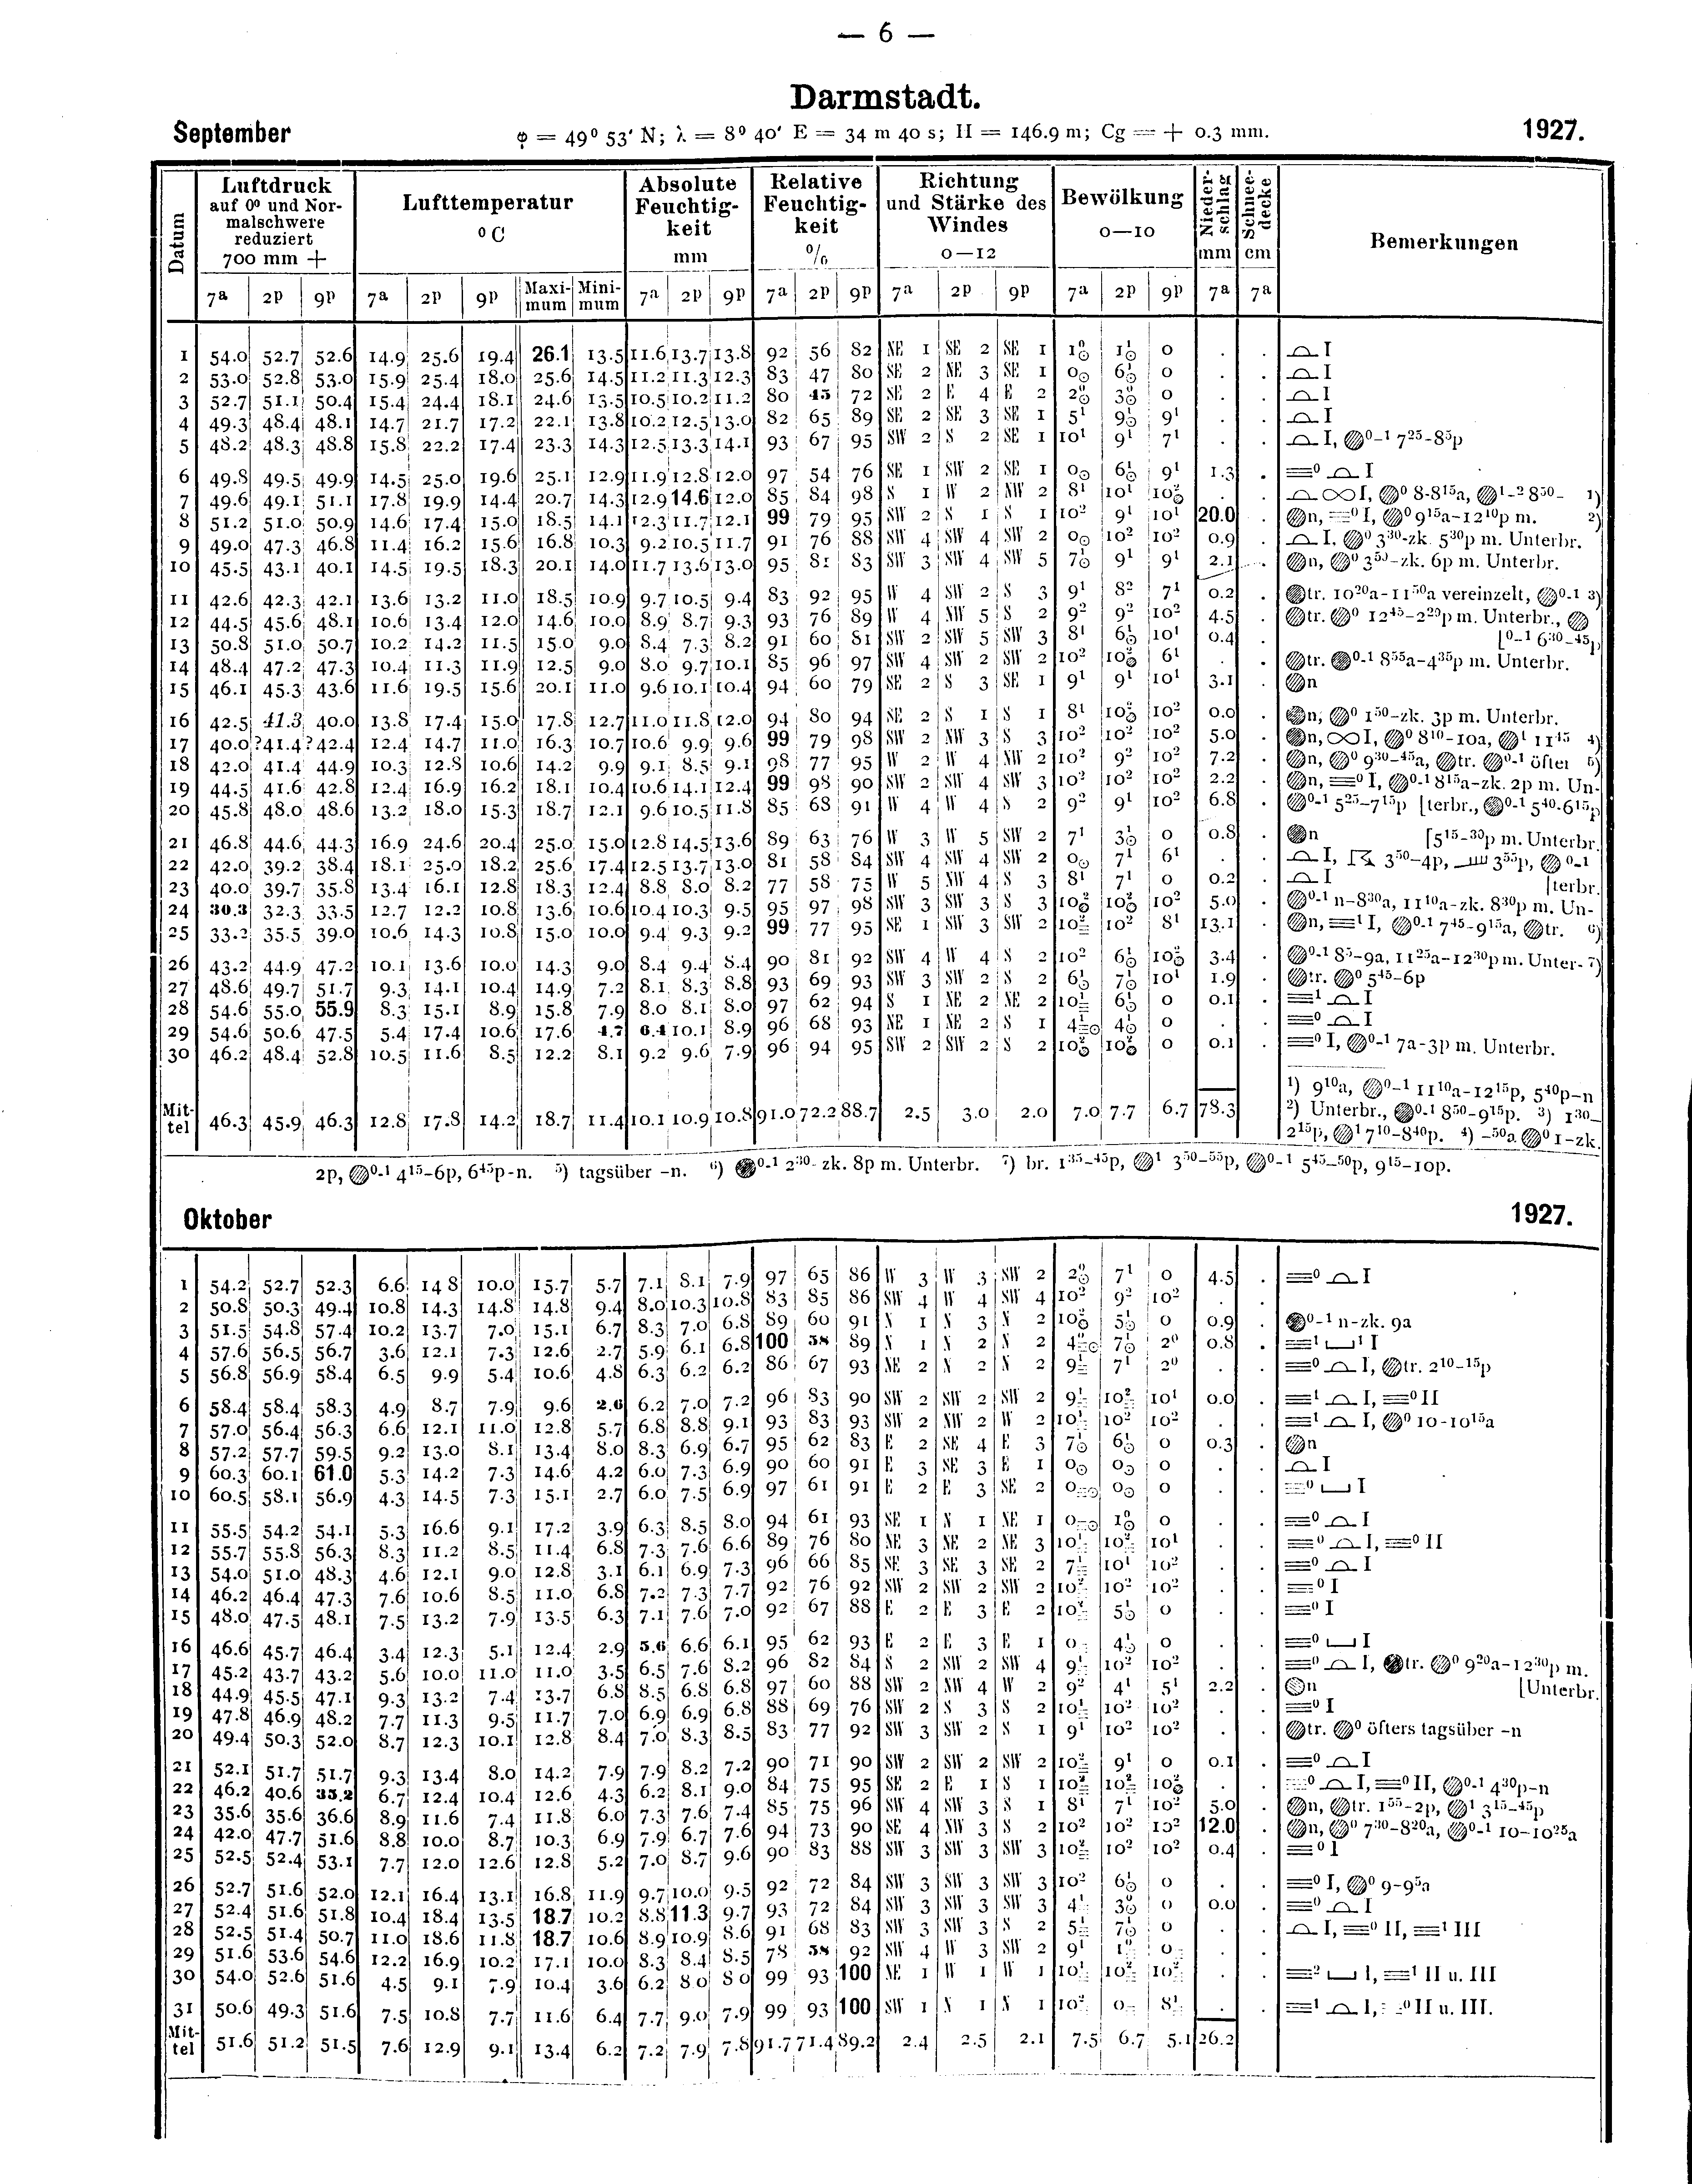 — 6 —
Darmstadt.
September φ = 49⁰ 53' N; λ = 8⁰ 40' E = 34 m 40 s; H = 146.9 m; Cg = + 0.3 mm. 1927.
Datum Luftdruck auf 0⁰ und Normalschwere reduziert 700 mm + Lufttemperatur ⁰ C Absolute Feuchtigkeit mm Relative Feuchtigkeit % Richtung und Stärke des Windes 0—12 Bewölkung 0—10 Niederschlag mm Schneedecke cm Bemerkungen
7a 2p 9p 7a 2p 9p Maximum Minimum 7a 2p 9p 7a 2p 9p 7a 2p 9p 7a 2p 9p 7a 7a
1 54.0 52.7 52.6 14.9 25.6 19.4 26.1 13.5 11.6 13.7 13.8 92 56 82 SE 1 SE 2 SE 1 1⁰ 1¹ 0 . . I
2 53.0 52.8 53.0 15.9 25.4 18.0 25.6 14.5 11.2 11.3 12.3 83 47 80 SE 2 NE 3 SE 1 0 6¹ 0 . . I
3 52.7 51.1 50.4 15.4 24.4 18.1 24.6 13.5 10.5 10.2 11.2 80 45 72 SE 2 E 4 E 2 2⁰ 3⁰ 0 . . I
4 49.3 48.4 48.1 14.7 21.7 17.2 22.1 13.8 10.2 12.5 13.0 82 65 89 SE 2 SE 3 SE 1 5¹ 9¹ 9¹ . . I
5 48.2 48.3 48.8 15.8 22.2 17.4 23.3 14.3 12.5 13.3 14.1 93 67 95 SW 2 S 2 SE 1 10¹ 9¹ 7¹ . . I, ⁰⁻¹ 7²⁵-8⁵p
6 49.8 49.5 49.9 14.5 25.0 19.6 25.1 12.9 11.9 12.8 12.0 97 54 76 SE 1 SW 2 SE 1 0 6¹ 9¹ 1.3 . ≡⁰ I
7 49.6 49.1 51.1 17.8 19.9 14.4 20.7 14.3 12.9 14.6 12.0 85 84 98 S 1 W 2 NW 2 8¹ 10¹ 10² . . ∞ I, ⁰ 8-8¹⁵a, ¹⁻² 8⁵⁰- 1)
8 51.2 51.0 50.9 14.6 17.4 15.0 18.5 14.1 12.3 11.7 12.1 99 79 95 SW 2 S 1 S 1 10² 9¹ 10¹ 20.0 . n, ≡⁰ I, ⁰ 9¹⁵a-12¹⁰p m. 2)
9 49.0 47.3 46.8 11.4 16.2 15.6 16.8 10.3 9.2 10.5 11.7 91 76 88 SW 4 SW 4 SW 2 0 10² 10² 0.9 . I, ⁰ 3³⁰-zk. 5³⁰p m. Unterbr.
10 45.5 43.1 40.1 14.5 19.5 18.3 20.1 14.0 11.7 13.6 13.0 95 81 83 SW 3 SW 4 SW 5 7¹ 9¹ 9¹ 2.1 . n, ⁰ 3⁵⁰-zk. 6p m. Unterbr.
11 42.6 42.3 42.1 13.6 13.2 11.0 18.5 10.9 9.7 10.5 9.4 83 92 95 W 4 SW 2 S 3 9¹ 8² 7¹ 0.2 . tr. 10²⁰a-11⁵⁰a vereinzelt, ⁰⁻¹ 3)
12 44.5 45.6 48.1 10.6 13.4 12.0 14.6 10.0 8.9 8.7 9.3 93 76 89 W 4 SW 5 S 2 9² 9² 10² 4.5 . tr. ⁰ 12⁴⁵-2²⁰p m. Unterbr.,
13 50.8 51.0 50.7 10.2 14.2 11.5 15.0 9.0 8.4 7.3 8.2 91 60 81 SW 2 SW 5 SW 3 8¹ 6¹ 10¹ 0.4 . [⁰⁻¹ 6³⁰-⁴⁵p
14 48.4 47.2 47.3 10.4 11.3 11.9 12.5 9.0 8.0 9.7 10.1 85 96 97 SW 4 SW 2 SW 2 10² 10² 6¹ . . tr. ⁰⁻¹ 8⁵⁵a-4³⁵p m. Unterbr.
15 46.1 45.3 43.6 11.6 19.5 15.6 20.1 11.0 9.6 10.1 10.4 94 60 79 SE 2 S 3 SE 1 9¹ 9¹ 10¹ 3.1 . n
16 42.5 41.3 40.0 13.8 17.4 15.0 17.8 12.7 11.0 11.8 12.0 94 80 94 SE 2 S 1 S 1 8¹ 10² 10² 0.0 . n, ⁰ 1⁵⁰-zk. 3p m. Unterbr.
17 40.0 ?41.4 ?42.4 12.4 14.7 11.0 16.3 10.7 10.6 9.9 9.6 99 79 98 SW 2 NW 3 S 3 10² 10² 10² 5.0 . n, ∞ I, ⁰ 8¹⁰-10a, ¹ 11⁴⁵ 4)
18 42.0 41.4 44.9 10.3 12.8 10.6 14.2 9.9 9.1 8.5 9.1 98 77 95 W 2 W 4 NW 2 10² 9² 10² 7.2 . n, ⁰ 9³⁰-⁴⁵a, tr. ⁰⁻¹ öfter 5)
19 44.5 41.6 42.8 12.4 16.9 16.2 18.1 10.4 10.6 14.1 12.4 99 98 90 SW 2 SW 4 SW 3 10² 10² 10² 2.2 . n, ≡⁰ I, ⁰⁻¹ 8¹⁵a-zk. 2p m. Un-
20 45.8 48.0 48.6 13.2 18.0 15.3 18.7 12.1 9.6 10.5 11.8 85 68 91 W 4 W 4 S 2 9² 9¹ 10² 6.8 . ⁰⁻¹ 5²⁵-7¹⁵p [terbr., ⁰⁻¹ 5⁴⁰-6¹⁵p
21 46.8 44.6 44.3 16.9 24.6 20.4 25.0 15.0 12.8 14.5 13.6 89 63 76 W 3 W 5 SW 2 7¹ 3¹ 0 0.8 . n [5¹⁵-³⁰p m. Unterbr.
22 42.0 39.2 38.4 18.1 25.0 18.2 25.6 17.4 12.5 13.7 13.0 81 58 84 SW 4 SW 4 SW 2 0 7¹ 6¹ . . I, 3⁵⁰-4p, 3⁵⁵p, ⁰⁻¹
23 40.0 39.7 35.8 13.4 16.1 12.8 18.3 12.4 8.8 8.0 8.2 77 58 75 W 5 NW 4 S 3 8¹ 7¹ 0 0.2 . I [terbr.
24 30.3 32.3 33.5 12.7 12.2 10.8 13.6 10.6 10.4 10.3 9.5 95 97 98 SW 3 SW 3 S 3 10² 10² 10² 5.0 . ⁰⁻¹ n-8³⁰a, 11¹⁰a-zk. 8³⁰p m. Un-
25 33.2 35.5 39.0 10.6 14.3 10.8 15.0 10.0 9.4 9.3 9.2 99 77 95 SE 1 SW 3 SW 2 10² 10² 8¹ 13.1 . n, ≡¹ I, ⁰⁻¹ 7⁴⁵-9¹⁵a, tr. 6)
26 43.2 44.9 47.2 10.1 13.6 10.0 14.3 9.0 8.4 9.4 8.4 90 81 92 SW 4 W 4 S 2 10² 6¹ 10² 3.4 . ⁰⁻¹ 8⁵-9a, 11²⁵a-12³⁰p m. Unter- 7)
27 48.6 49.7 51.7 9.3 14.1 10.4 14.9 7.2 8.1 8.3 8.8 93 69 93 SW 3 SW 2 S 2 6¹ 7¹ 10¹ 1.9 . tr. ⁰ 5⁴⁵-6p
28 54.6 55.0 55.9 8.3 15.1 8.9 15.8 7.9 8.0 8.1 8.0 97 62 94 S 1 NE 2 NE 2 10¹ 6¹ 0 0.1 . ≡¹ I
29 54.6 50.6 47.5 5.4 17.4 10.6 17.6 4.7 6.4 10.1 8.9 96 68 93 NE 1 NE 2 S 1 4 4¹ 0 . . ≡⁰ I
30 46.2 48.4 52.8 10.5 11.6 8.5 12.2 8.1 9.2 9.6 7.9 96 94 95 SW 2 SW 2 S 2 10² 10² 0 0.1 . ≡⁰ I, ⁰⁻¹ 7a-3p m. Unterbr.
Mittel 46.3 45.9 46.3 12.8 17.8 14.2 18.7 11.4 10.1 10.9 10.8 91.0 72.2 88.7 2.5 3.0 2.0 7.0 7.7 6.7 78.3
1) 9¹⁰a, ⁰⁻¹ 11¹⁰a-12¹⁵p, 5⁴⁰p-n
2) Unterbr., ⁰⁻¹ 8⁵⁰-9¹⁵p. 3) 1³⁰-
2¹⁵p, ¹ 7¹⁰-8⁴⁰p. 4) -50a ⁰ 1-zk.
2p, ⁰⁻¹ 4¹⁵-6p, 6⁴⁵p-n. 5) tagsüber -n. 6) ⁰⁻¹ 2³⁰- zk. 8p m. Unterbr. 7) br. 1³⁵-⁴⁵p, ¹ 3⁵⁰-⁵⁵p, ⁰⁻¹ 5⁴⁵-⁵⁰p, 9¹⁵-10p.
Oktober 1927.
1 54.2 52.7 52.3 6.6 14.8 10.0 15.7 5.7 7.1 8.1 7.9 97 65 86 W 3 W 3 SW 2 2⁰ 7¹ 0 4.5 . ≡⁰ I
2 50.8 50.3 49.4 10.8 14.3 14.8 14.8 9.4 8.0 10.3 10.8 83 85 86 SW 4 W 4 SW 4 10² 9² 10² . .
3 51.5 54.8 57.4 10.2 13.7 7.0 15.1 6.7 8.3 7.0 6.8 89 60 91 N 1 N 3 N 2 10² 5¹ 0 0.9 . ⁰⁻¹ n-zk. 9a
4 57.6 56.5 56.7 3.6 12.1 7.3 12.6 2.7 5.9 6.1 6.8 100 58 89 N 1 N 2 N 2 4 7¹ 2⁰ 0.8 . ≡¹ ¹ I
5 56.8 56.9 58.4 6.5 9.9 5.4 10.6 4.8 6.3 6.2 6.2 86 67 93 NE 2 N 2 N 2 9¹ 7¹ 2⁰ . ≡⁰ I, tr. 2¹⁰-¹⁵p
6 58.4 58.4 58.3 4.9 8.7 7.9 9.6 2.6 6.2 7.0 7.2 96 83 90 SW 2 SW 2 SW 2 9¹ 10² 10¹ 0.0 . ≡¹ I, ≡⁰ II
7 57.0 56.4 56.3 6.6 12.1 11.0 12.8 5.7 6.8 8.8 9.1 93 83 93 SW 2 NW 2 W 2 10¹ 10² 10² . . ≡¹ I, ⁰ 10-10¹⁵a
8 57.2 57.7 59.5 9.2 13.0 8.1 13.4 8.0 8.3 6.9 6.7 95 62 83 E 2 SE 4 E 3 7¹ 6¹ 0 0.3 . n
9 60.3 60.1 61.0 5.3 14.2 7.3 14.6 4.2 6.0 7.3 6.9 90 60 91 E 3 SE 3 E 1 0 0 0 . . I
10 60.5 58.1 56.9 4.3 14.5 7.3 15.1 2.7 6.0 7.5 6.9 97 61 91 E 2 E 3 SE 2 0 0 0 . . ≡⁰ I
11 55.5 54.2 54.1 5.3 16.6 9.1 17.2 3.9 6.3 8.5 8.0 94 61 93 SE 1 N 1 NE 1 0 1⁰ 0 . . ≡⁰ I
12 55.7 55.8 56.3 8.3 11.2 8.5 11.4 6.8 7.3 7.6 6.6 89 76 80 NE 3 NE 2 NE 3 10¹ 10² 10¹ . . ≡⁰ I, ≡⁰ II
13 54.0 51.0 48.3 4.6 12.1 9.0 12.8 3.1 6.1 6.9 7.3 96 66 85 SE 3 SE 3 SE 2 7¹ 10¹ 10² . . ≡⁰ I
14 46.2 46.4 47.3 7.6 10.6 8.5 11.0 6.8 7.2 7.3 7.7 92 76 92 SW 2 SW 2 SW 2 10² 10² 10² . . ≡⁰ I
15 48.0 47.5 48.1 7.5 13.2 7.9 13.5 6.3 7.1 7.6 7.0 92 67 88 E 2 E 3 E 2 10² 5¹ 0 . . ≡⁰ I
16 46.6 45.7 46.4 3.4 12.3 5.1 12.4 2.9 5.6 6.6 6.1 95 62 93 E 2 E 3 E 1 0 4¹ 0 . . ≡⁰ I
17 45.2 43.7 43.2 5.6 10.0 11.0 11.0 3.5 6.5 7.6 8.2 96 82 84 S 2 SW 2 SW 4 9¹ 10² 10² . . ≡⁰ I, tr. ⁰ 9²⁰a-12³⁰p m.
18 44.9 45.5 47.1 9.3 13.2 7.4 13.7 6.8 8.5 6.8 6.8 97 60 88 SW 2 SW 4 W 2 9² 4¹ 5¹ 2.2 . n [Unterbr.
19 47.8 46.9 48.2 7.7 11.3 9.5 11.7 7.0 6.9 6.9 6.8 88 69 76 SW 2 S 3 S 2 10¹ 10² 10² . . ≡⁰ I
20 49.4 50.3 52.0 8.7 12.3 10.1 12.8 8.4 7.0 8.3 8.5 83 77 92 SW 3 SW 2 S 1 9¹ 10² 10² . . tr. ⁰ öfters tagsüber -n
21 52.1 51.7 51.7 9.3 13.4 8.0 14.2 7.9 7.9 8.2 7.2 90 71 90 SW 2 SW 2 SW 2 10² 9¹ 0 0.1 . ≡⁰ I
22 46.2 40.6 35.2 6.7 12.4 10.4 12.6 4.3 6.2 8.1 9.0 84 75 95 SE 2 E 1 S 1 10² 10² 10² . . ≡⁰ I, ≡⁰ II, ⁰⁻¹ 4³⁰p-n
23 35.6 35.6 36.6 8.9 11.6 7.4 11.8 6.0 7.3 7.6 7.4 85 75 96 SW 4 SW 3 S 1 8¹ 7¹ 10² 5.0 . n, tr. 1⁵⁵-2p, ¹ 3¹⁵-⁴⁵p
24 42.0 47.7 51.6 8.8 10.0 8.7 10.3 6.9 7.9 6.7 7.6 94 73 90 SE 4 NW 3 S 2 10² 10² 10² 12.0 . n, ⁰ 7³⁰-8²⁰a, ⁰⁻¹ 10-10²⁵a
25 52.5 52.4 53.1 7.7 12.0 12.6 12.8 5.2 7.0 8.7 9.6 90 83 88 SW 3 SW 3 SW 3 10² 10² 10² 0.4 . ≡⁰ I
26 52.7 51.6 52.0 12.1 16.4 13.1 16.8 11.9 9.7 10.0 9.5 92 72 84 SW 3 SW 3 SW 3 10² 6¹ 0 . . ≡⁰ I, ⁰ 9-9⁵a
27 52.4 51.6 51.8 10.4 18.4 13.5 18.7 10.2 8.8 11.3 9.7 93 72 84 SW 3 SW 3 SW 3 4¹ 3⁰ 0 0.0 . ≡⁰ I
28 52.5 51.4 50.7 11.0 18.6 11.8 18.7 10.6 8.9 10.9 8.6 91 68 83 SW 3 SW 3 S 2 5¹ 7¹ 0 . . I, ≡⁰ II, ≡¹ III
29 51.6 53.6 54.6 12.2 16.9 10.2 17.1 10.0 8.3 8.4 8.5 78 58 92 SW 4 W 3 SW 2 9¹ 1⁰ 0 . .
30 54.0 52.6 51.6 4.5 9.1 7.9 10.4 3.6 6.2 8.0 8.0 99 93 100 NE 1 W 1 W 1 10¹ 10² 10² . . ≡² I, ≡¹ II u. III
31 50.6 49.3 51.6 7.5 10.8 7.7 11.6 6.4 7.7 9.0 7.9 99 93 100 SW 1 N 1 N 1 10² 0 8¹ . . ≡¹ I, ⁰ II u. III.
Mittel 51.6 51.2 51.5 7.6 12.9 9.1 13.4 6.2 7.2 7.9 7.8 91.7 71.4 89.2 2.4 2.5 2.1 7.5 6.7 5.1 26.2